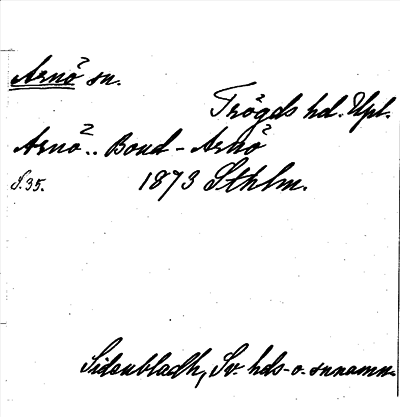 Arnö sn.
Trögds hd. Upl.
Arnö.. Bond-Arnö
S. 35. 1873 Sthlm.
Sidenbladh, Sv. hds- o. snnamn.